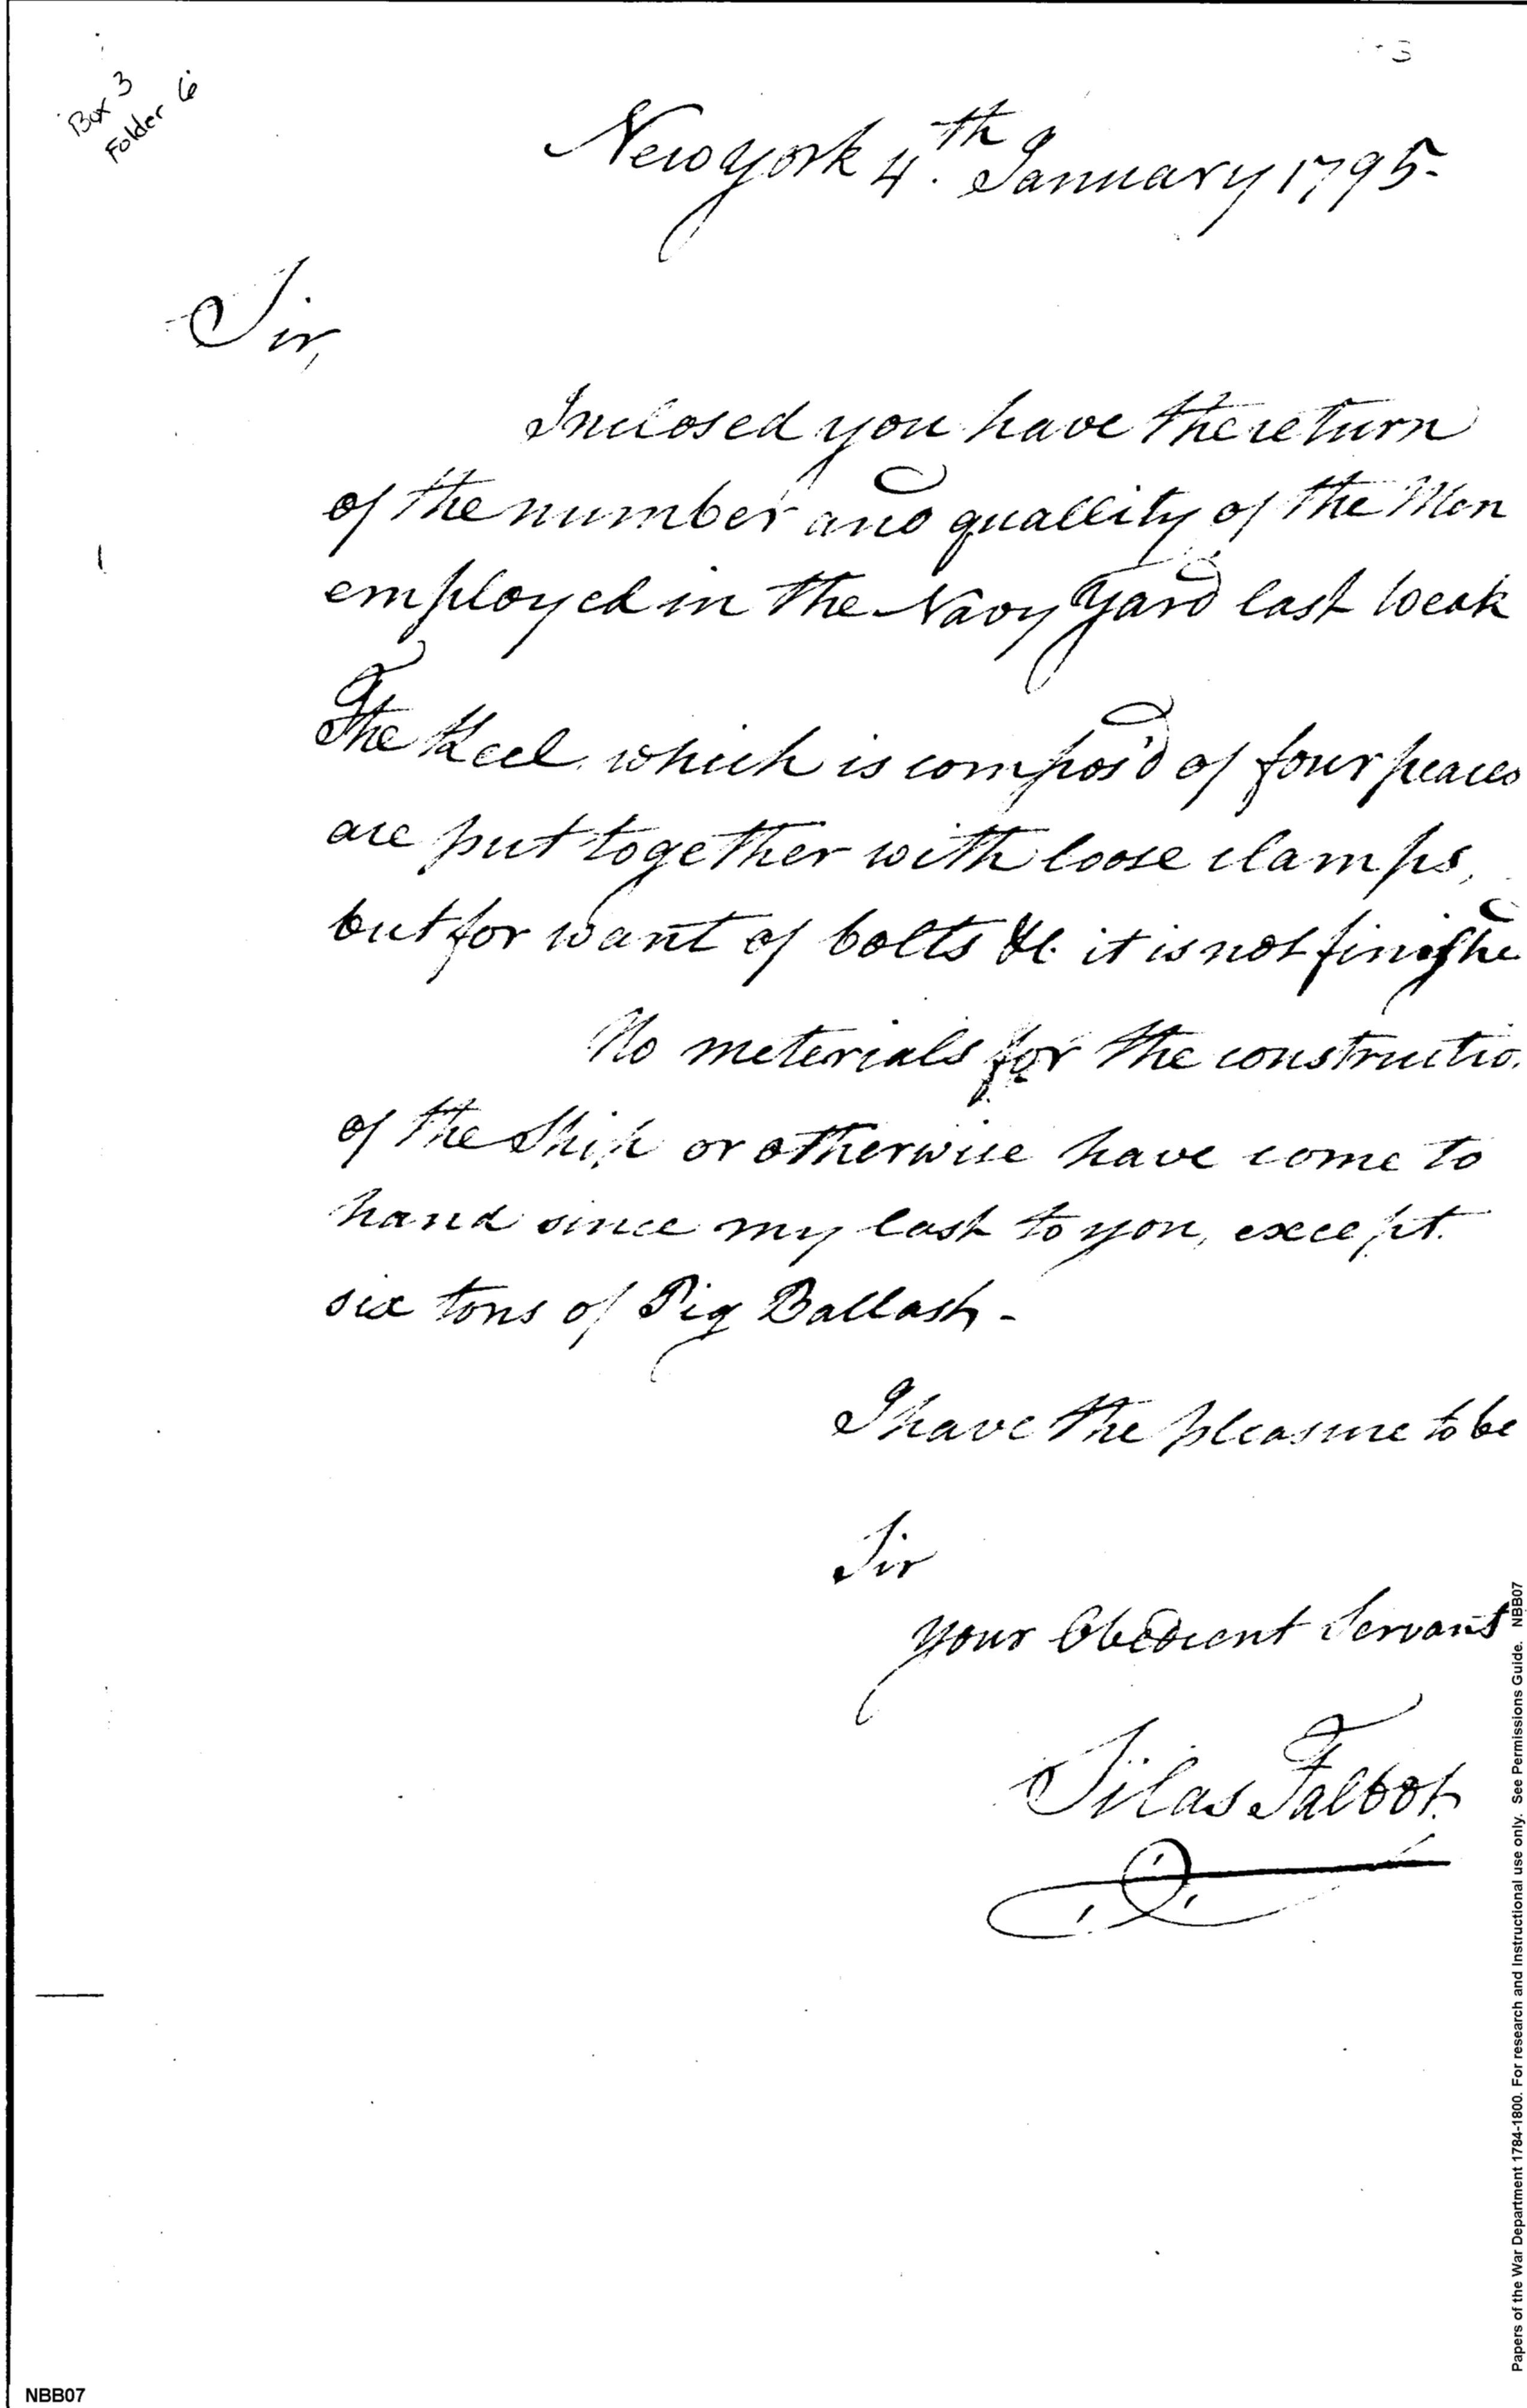 Box 3
Folder 6
New york 4th. January 1795-
Sir,
Inclosed you have the return
of the number and quallity of the Men
employed in the Navy Yard last weak
The Keel which is compos'd of four peaces
are put together with loose clamps,
but for want of bolts &c. it is not finishe
No meterials for the constructio
of the Ship or otherwise have come to
hand since my last to you, except
six tons of Pig Ballast -
I have the pleasure to be
Sir
your Obedient Servant
Silas Talbot
Papers of the War Department 1784-1800. For research and Instructional use only. See Permissions Guide. NBB07
NBB07